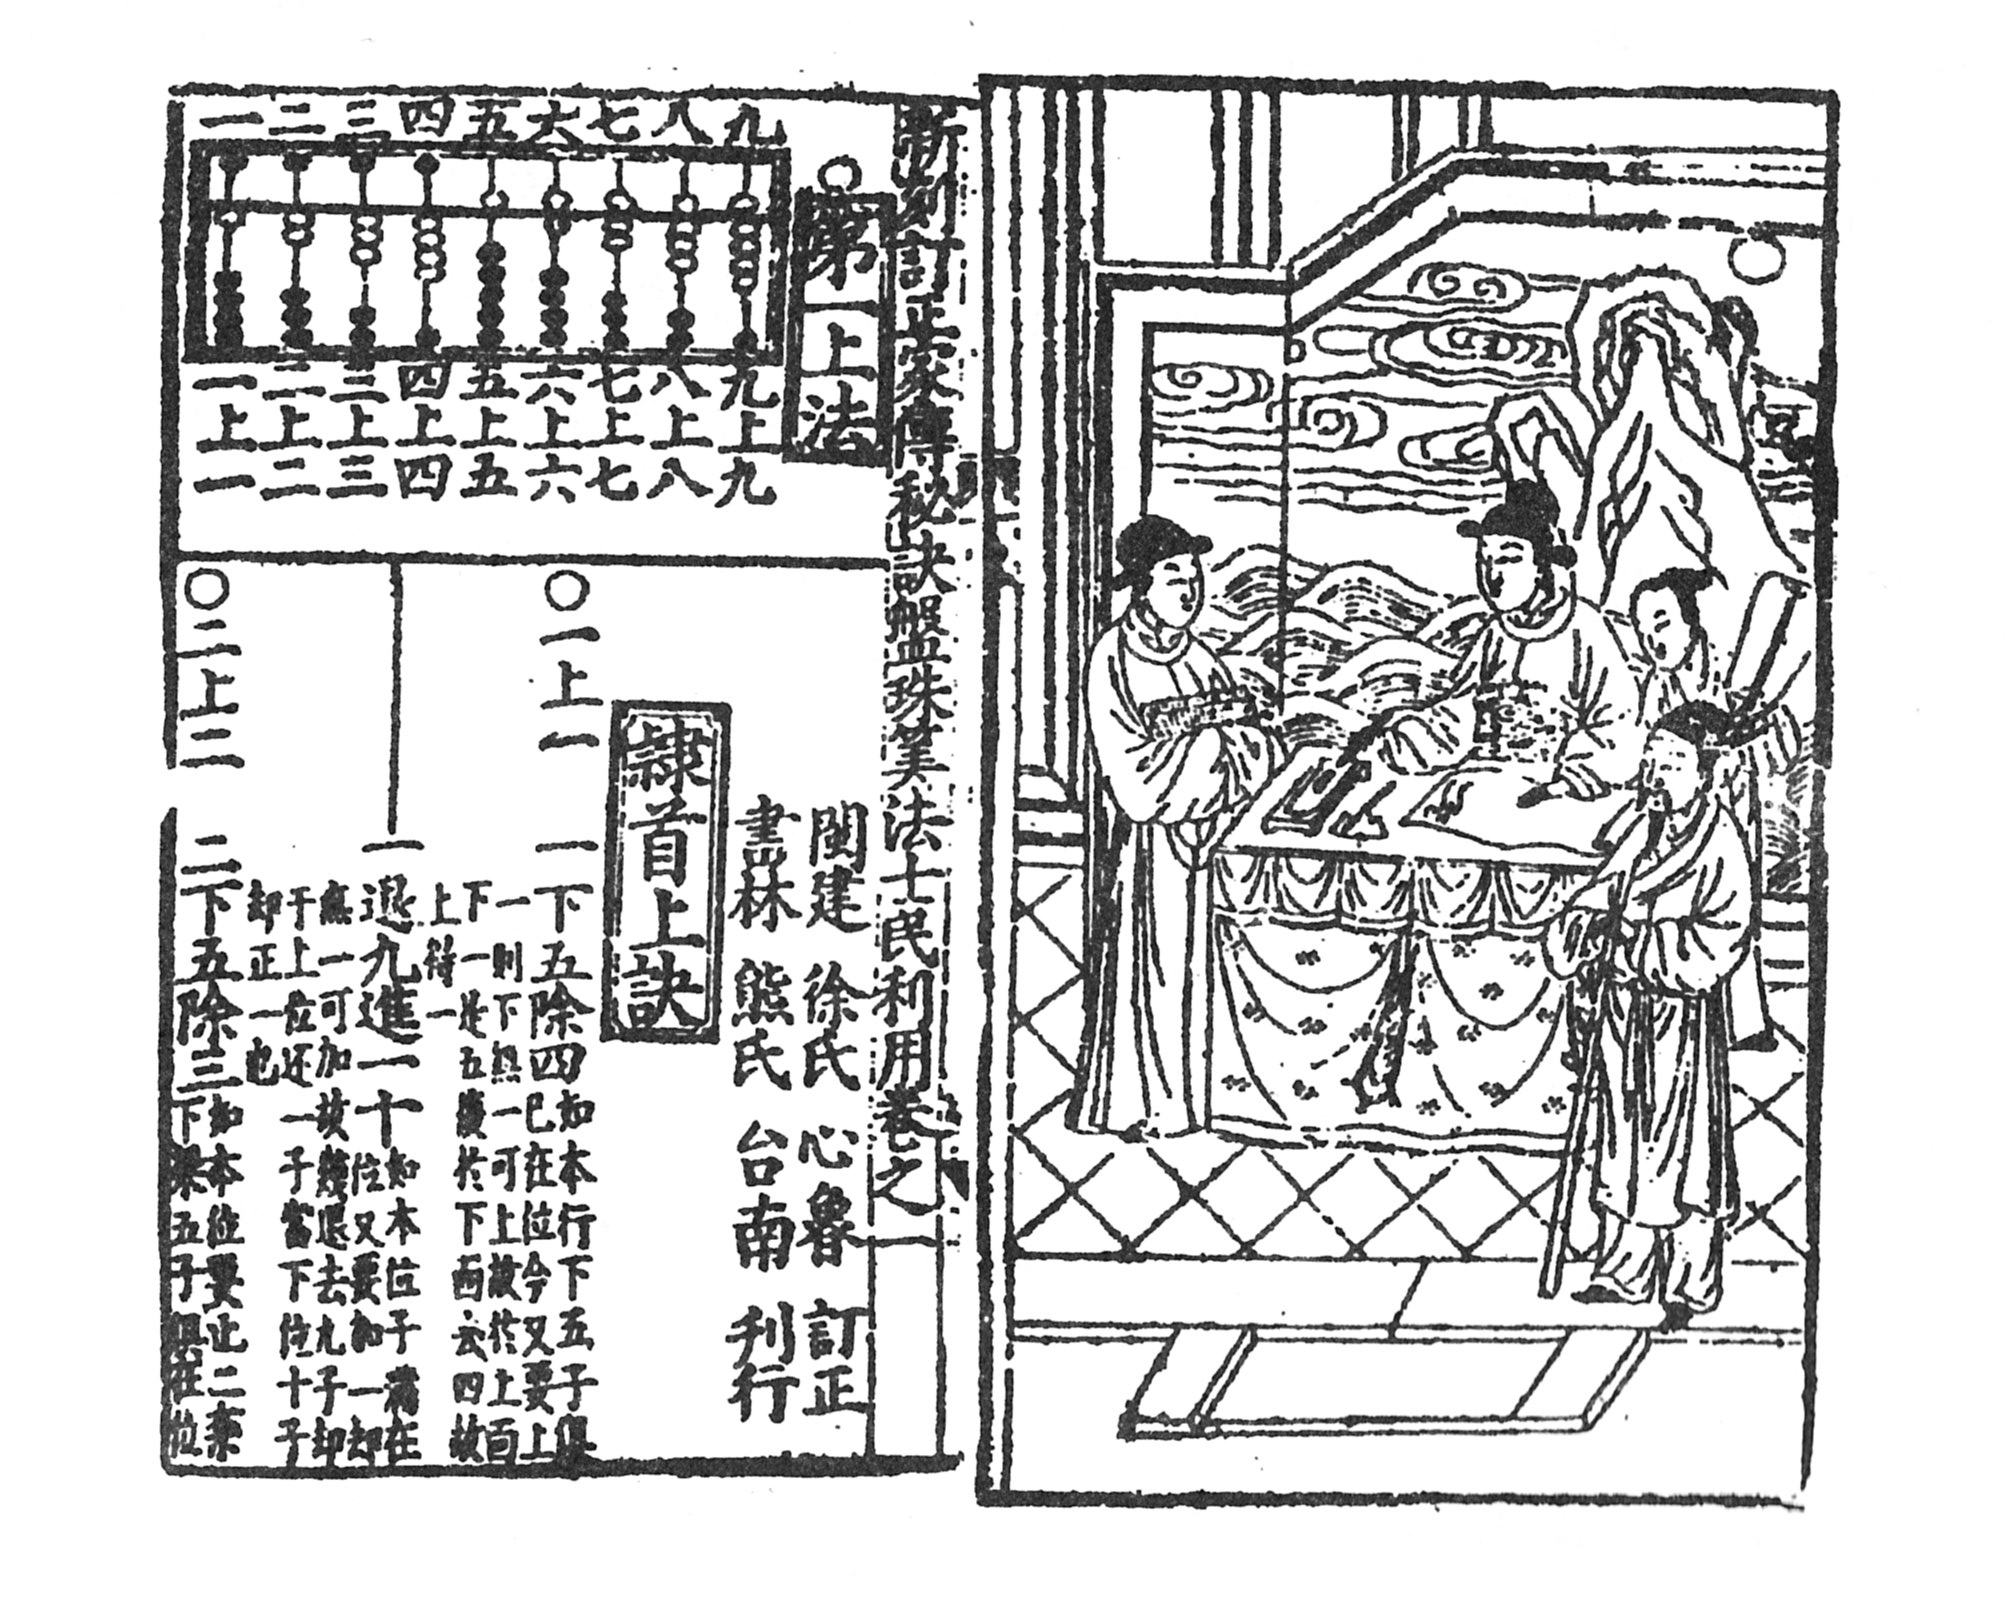 新刻訂正家傳秘訣盤珠筭法士民利用卷之一
○第一上法
九八七六五四三二一
九上九
八上八
七上七
六上六
五上五
四上四
三上三
二上二
一上一
閩建 徐氏 心魯 訂正
書林 熊氏 台南 刊行
隸首上訣
○一上一 一下五除四
如本行下五子俱
已在位今又要上
一則下無一可上故於上面
下一是五後於下面去四故
上得一
一退九進一十
如本位子滿在
位又要加一却
無一可加故幾退去九子却
于上位还一子當下位十子
却正一也
○二上二 二下五除三
如本位要上二乘
下梁五子俱在位